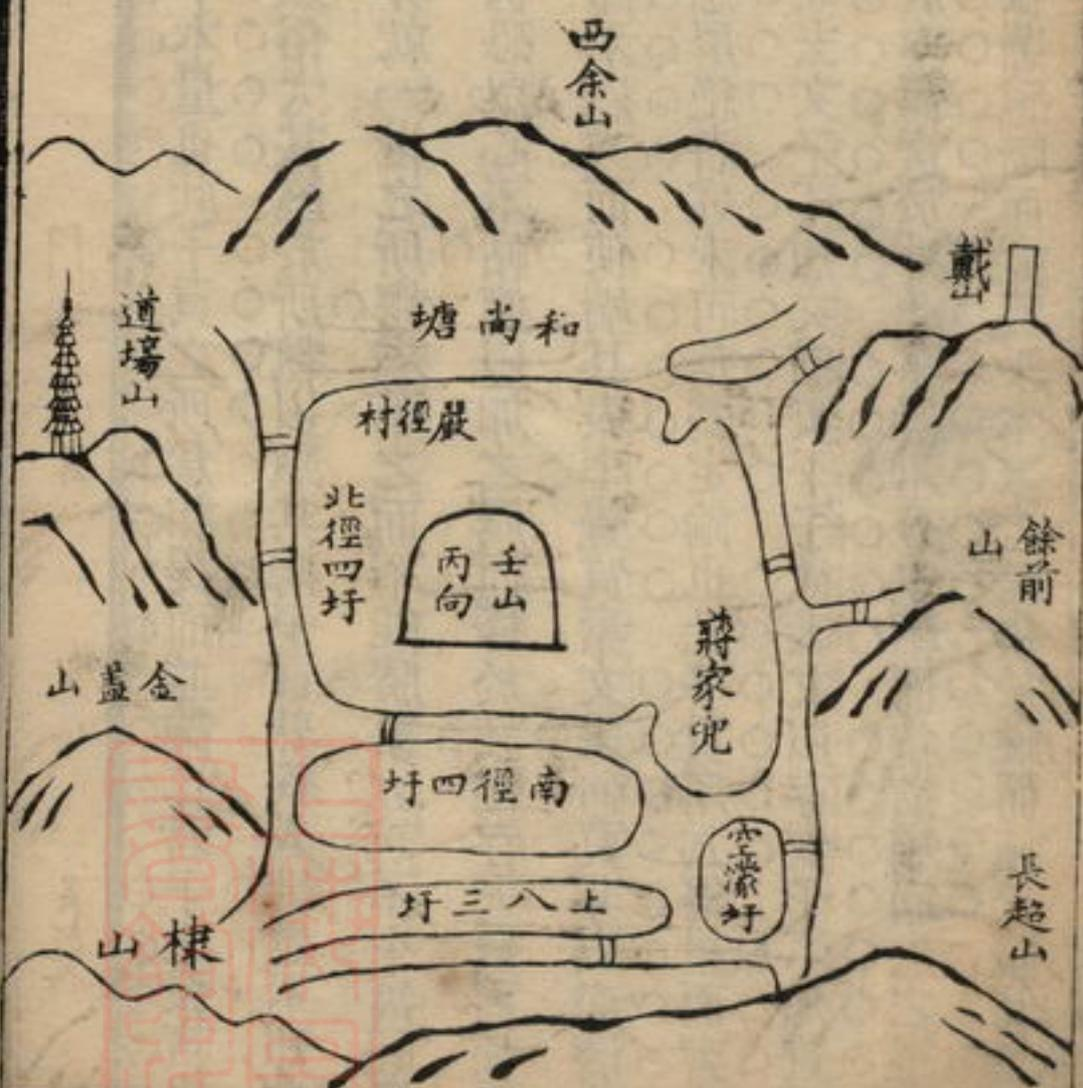 西余山
戴山
道塲山
和尚塘
嚴徑村
北徑四圩
壬山
丙向
餘前
山
蔣家兜
金蓋山
南徑四圩
上八三圩
長超山
棣山